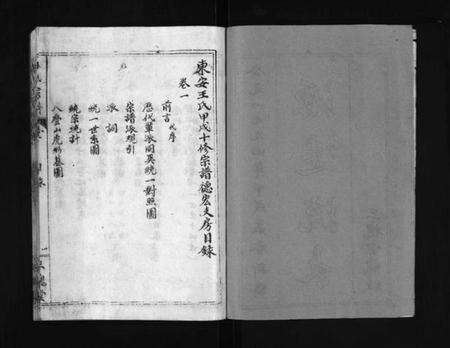 東安王氏甲戌十修宗譜德宏支房目錄
卷一
前言代序
歷代輩派同異統一對照圖
宗譜派規引
派詞
統一世系圖
統宗統計
八疊山虎形墓圖